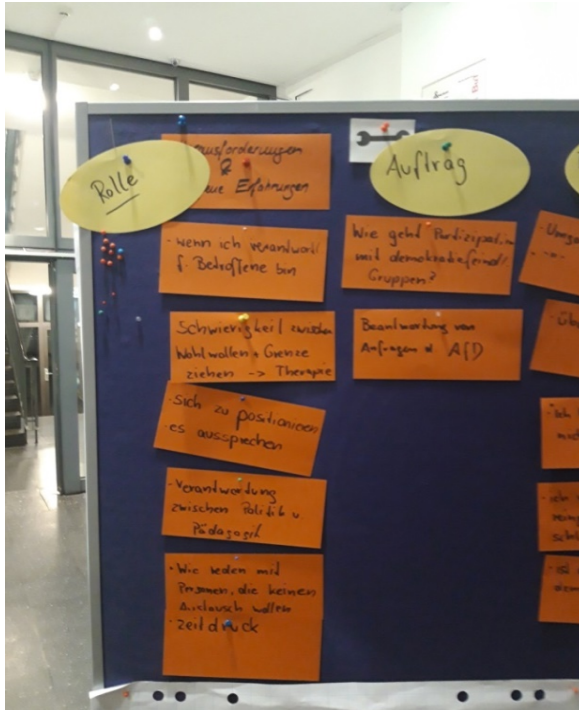 Rolle
Auftrag
ausforderungen
&
Erfahrungen
- wenn ich verantwortl
f. Betroffene bin
Schwierigkeit zwischen
Wohlwollen + Grenze
ziehen -> Therapie
- Sich zu positionieren
- es aussprechen
- Verantwortung
zwischen Politik u.
Pädagogik
- Wie reden mit
Personen, die keinen
Austausch wollen
- Zeitdruck
Wie geht Partizipation
mit demokratiefeindl
Gruppen?
Beantwortung von
Anfragen AfD
- Umga
- Üb
- ich